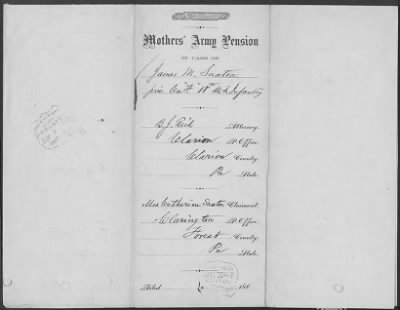 Mothers' Army Pension
IN CASE OF
James M. Saxton
priv. Co. "F" 18th Infantry
B. J. Reid Attorney.
Clarion P. Office.
Clarion County.
Pa State.
Mrs Catherine Saxton Claimant.
Clarington P. Office.
Forest County.
Pa State.
Filed 186